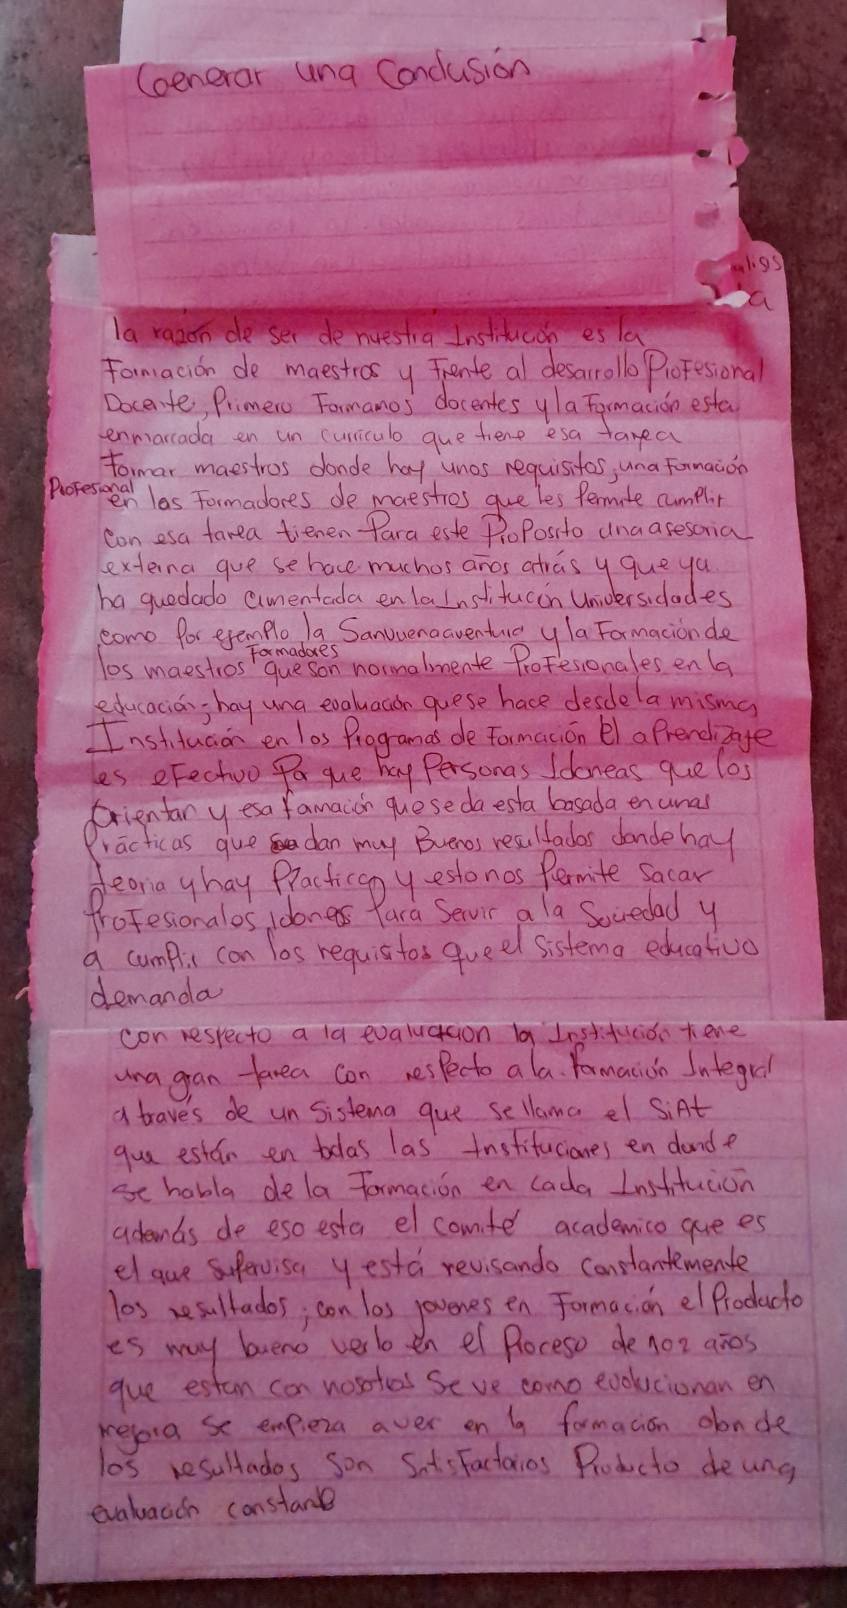 Generar una Conclusión
la
la razón de ser de nuestra Institución es la
Formación de maestros y Frente al desarrollo Profesional
Docente, Primero Formamos docentes y la Formación esta
enmarcada en un curriculo que tiene esa tarea
Formar maestros donde hay unos requisitos, una Formación
Profesional
en los Formadores de maestros que les Permite cumplir
con esa tarea tienen Para este Proposito una asesoria
externa que se hace muchos años atrás y que ya
ha quedado cimentada en la Institución Universidades
como Por ejemplo la y la Formación de
Formadores
los maestros que son normalmente Profesionales en la
educación; hay una evaluación que se hace desde la misma
Institución en los Programas de Formación El aPrendizaje
es eFectivo Po que hay Personas Idoneas que los
Orientan y esa famación que se da esta basada en unas
Prácticas que dan muy Buenos resultados donde hay
teoria y hay Practica y esto nos Permite Sacar
ProFesionalos idones Para Servir a la Sociedad y
a cumplir con los requisitos que el Sistema educativo
demanda
con respecto a la evaluación la Institución tiene
una gan tarea con resPecto a la Formación Integral
a través de un Sistema que se llama el SiAt
que están en todas las Instituciones en donde
se habla de la Formación en cada Institución
además de eso esta el comité academico que es
el que suPervisa y está revisando constantemente
los resultados; con los jovenes en Formación el Producto
es muy bueno verlo en el Proceso de 1 o 2 años
que estan con nosotros Se ve como evolucionan en
mejora Se emPieza a ver en la formación donde
los resultados Son SatisFactorios Producto de una
evaluación constante